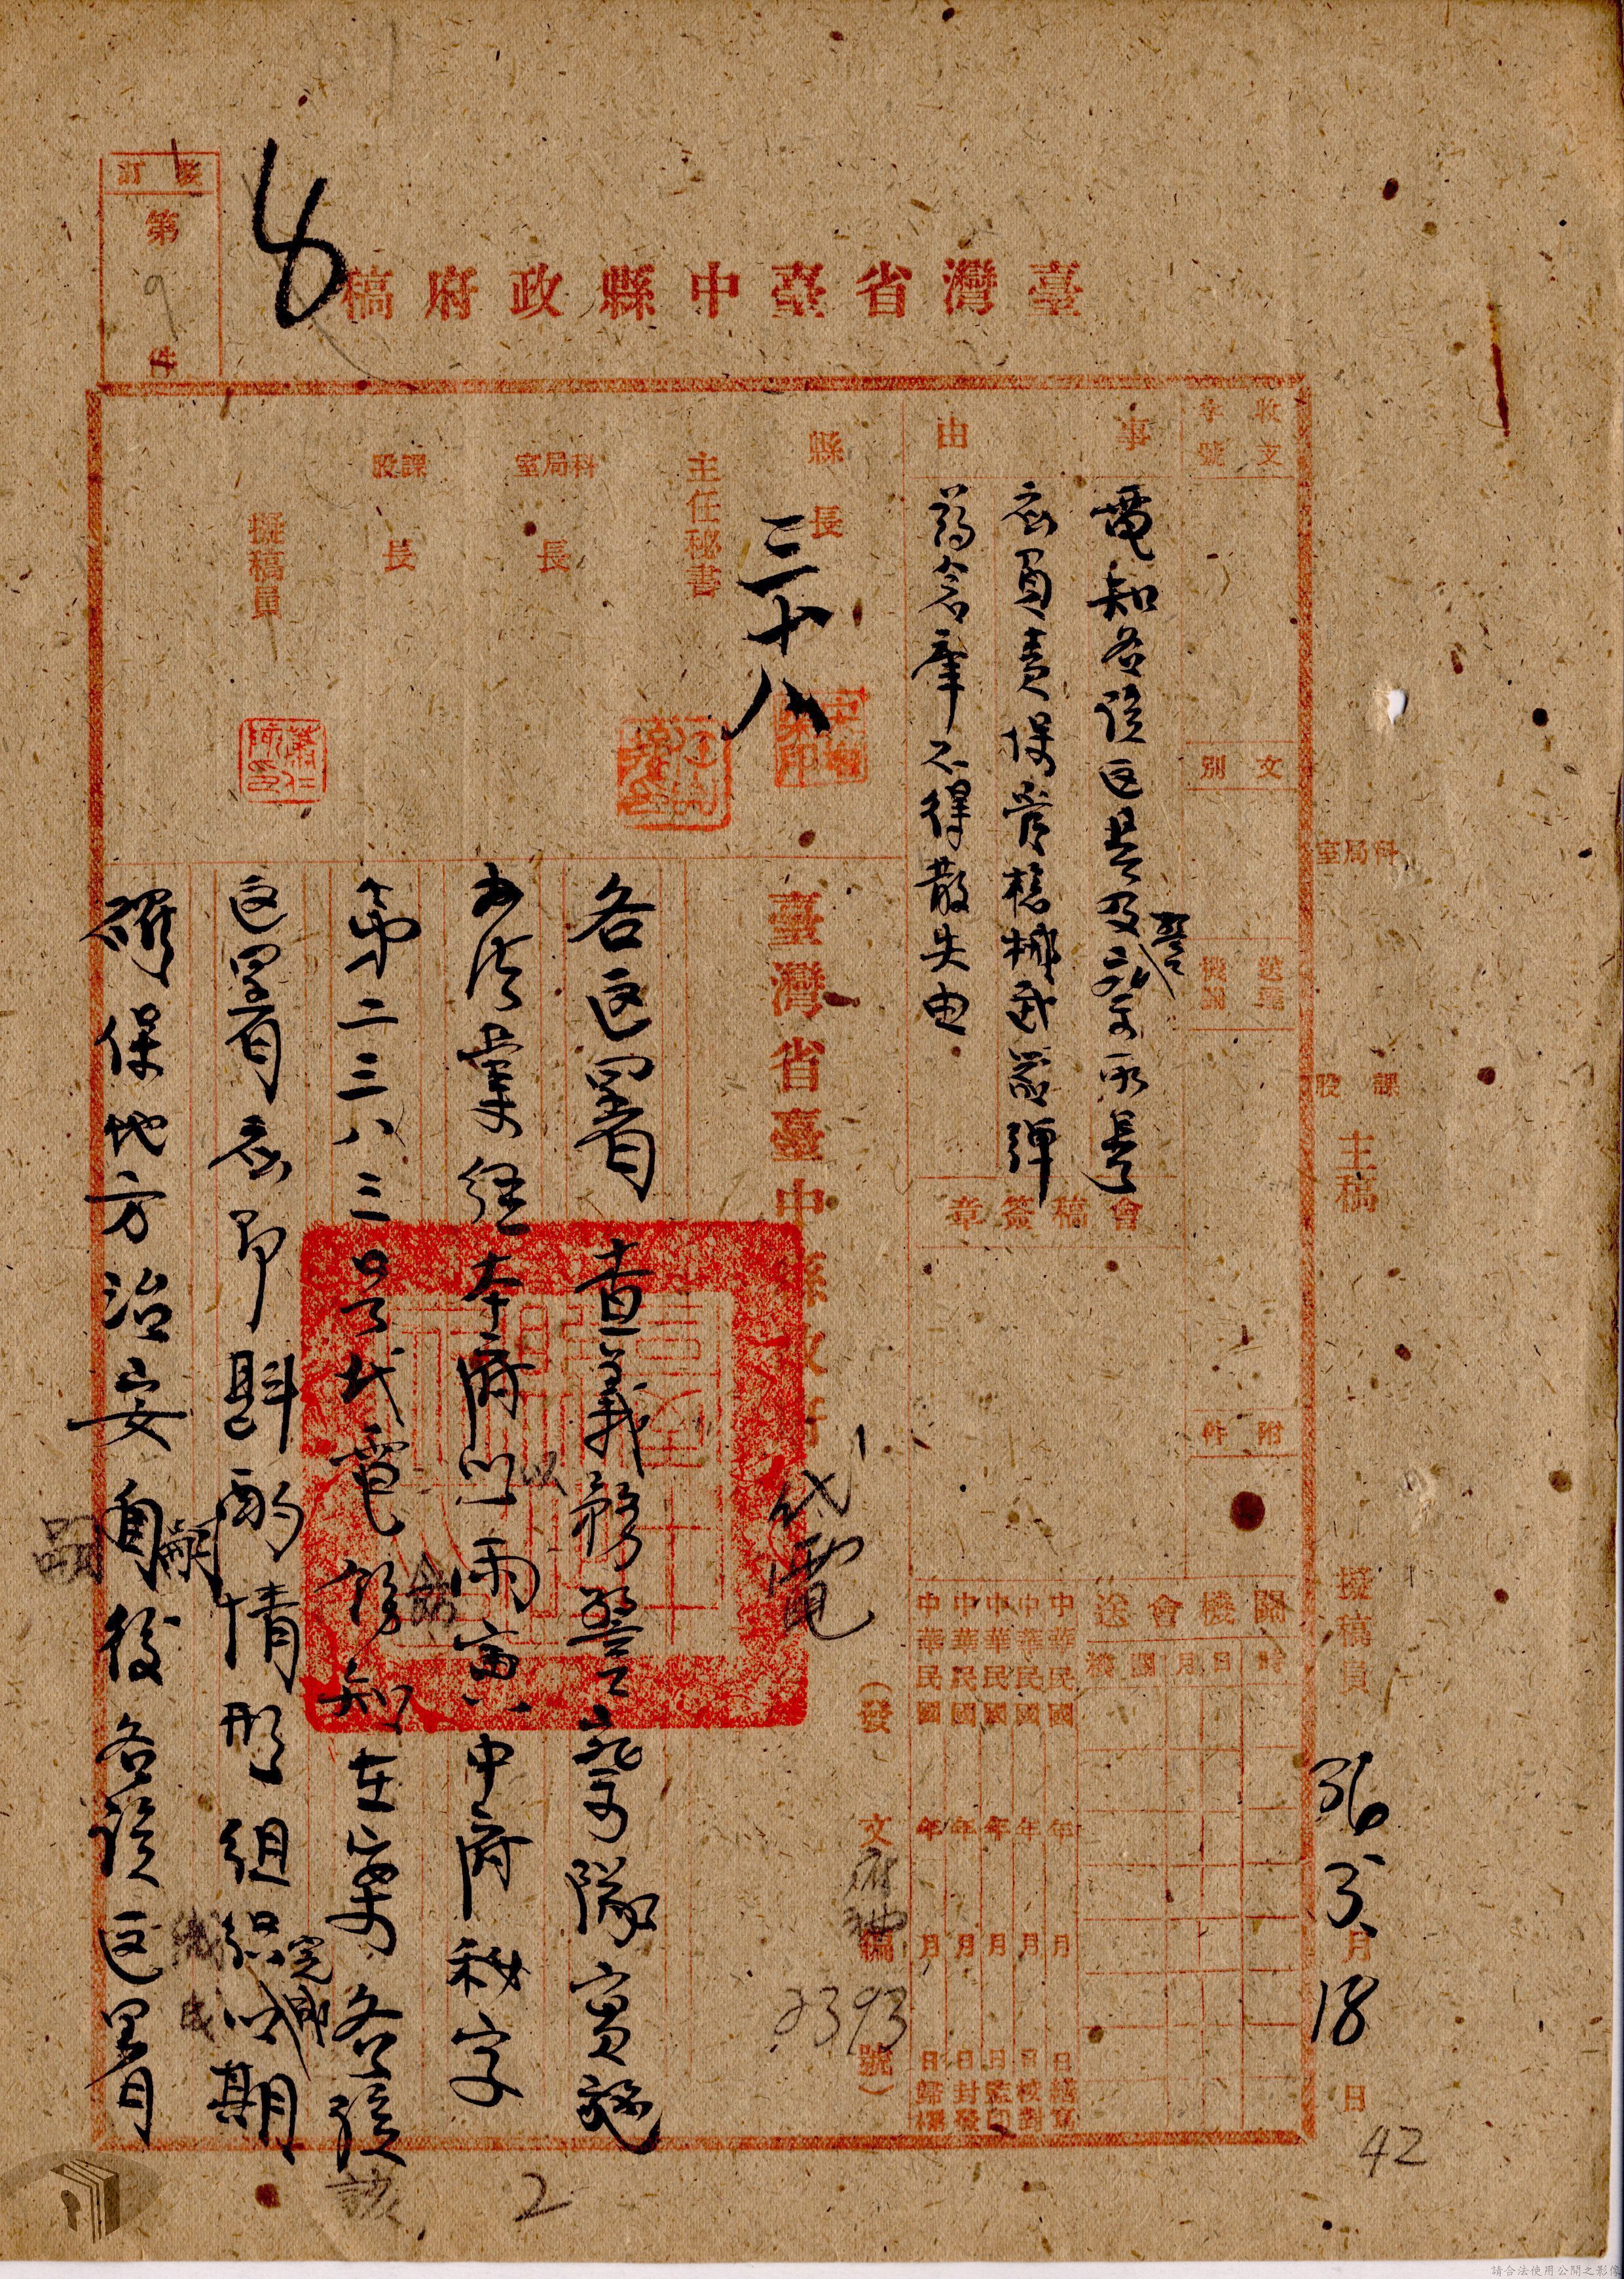 裝訂
第9件
臺灣省臺中縣政府稿
收文
字號
文別
送達機關
附件
事由
電知各該區長及警察所長
應負責保管槍械武器彈
葯倉庫不得散失由
會稿簽章
縣長
三十八
主任秘書
科局室長
課股長
擬稿員
科局室
課股
主稿
擬稿員
36年3月18日
關機會送
時日月關機
中華民國年月日繕寫
中華民國年月日核對
中華民國年月日監印
中華民國年月日封發
中華民國年月日歸檔
臺灣省臺中縣政府代電
(發文府秘編2393號)
各區署 查義務警察隊實施
辦法業經本府以丙寅 中府秘字
第二三八三號代電飭知在案各該
區署應即斟酌情形組織完成以期
確保地方治安嗣後各該區署
以
飭
該
嗣
2
42
請合法使用公開之影像